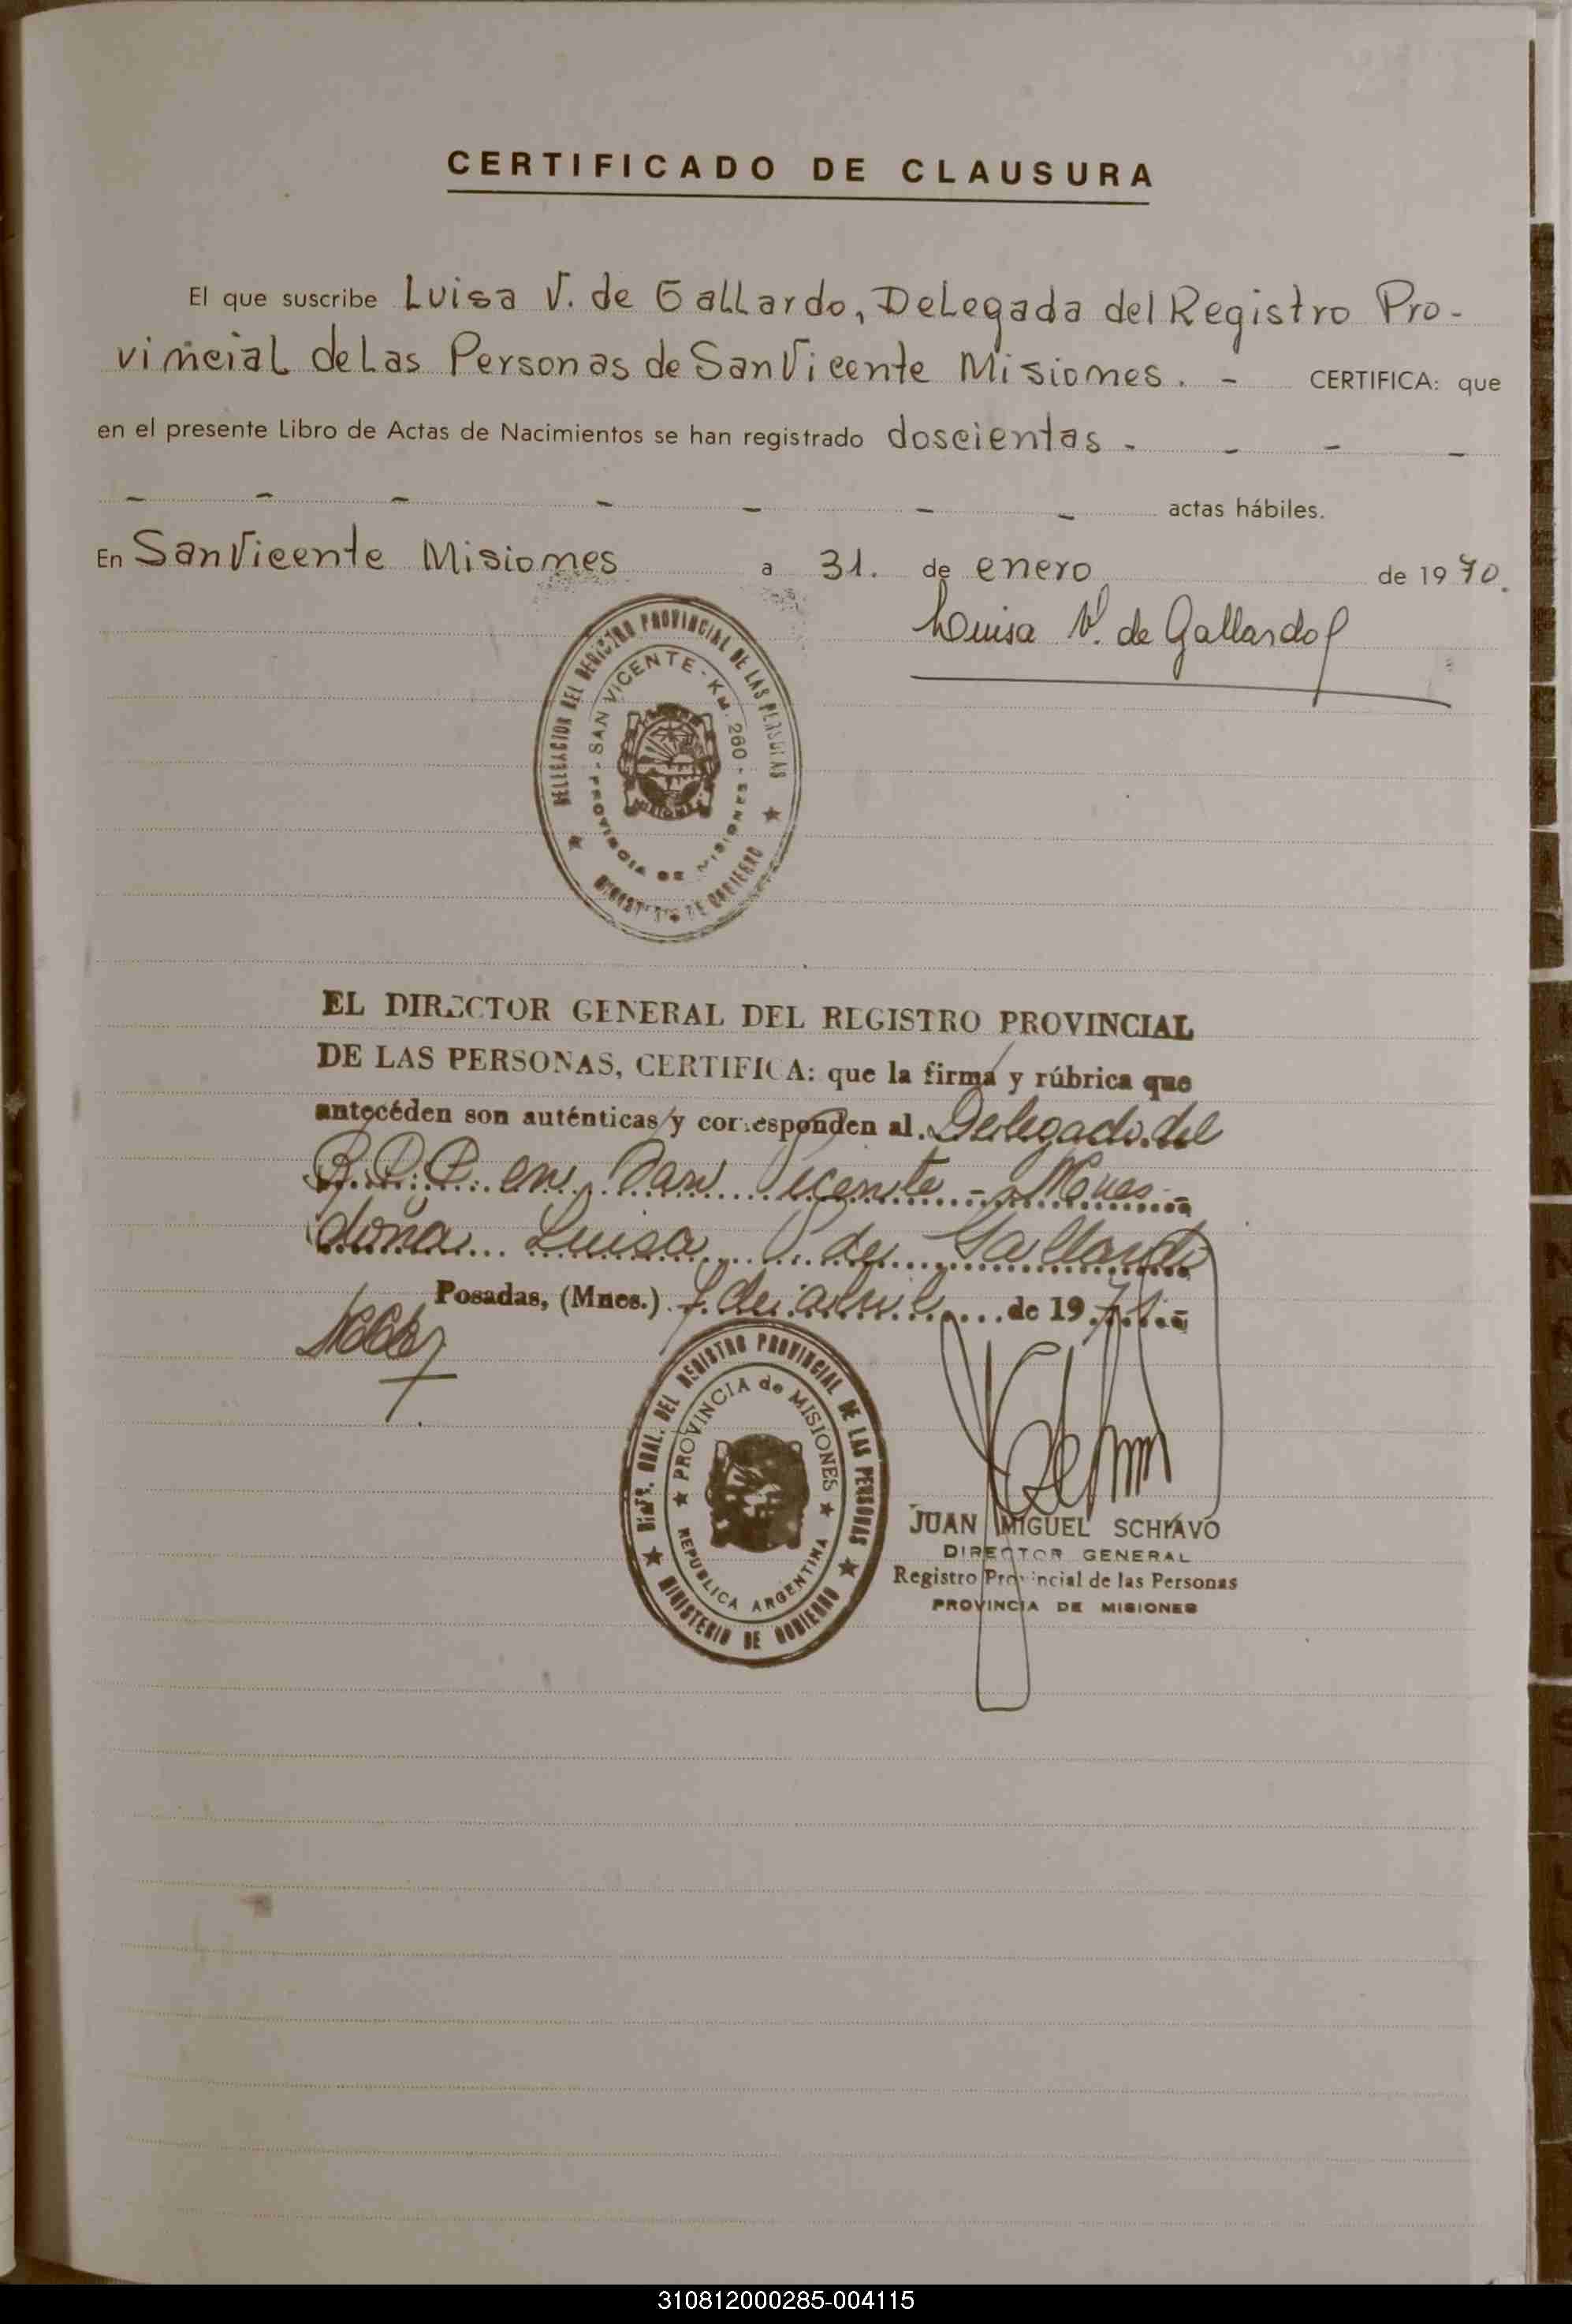 CERTIFICADO DE CLAUSURA
El que suscribe Luisa V. de Gallardo, Delegada del Registro Pro-
vincial de Las Personas de San Vicente Misiones. - CERTIFICA: que
en el presente Libro de Actas de Nacimientos se han registrado doscientas - - - -
- - - - - - - actas hábiles.
En San Vicente Misiones a 31. de enero de 1970.
Luisa V. de Gallardo
DELEGACION DEL REGISTRO PROVINCIAL DE LAS PERSONAS
SAN VICENTE - KM. 260 -
PROVINCIA DE MISIONES
MINISTERIO DE GOBIERNO
EL DIRECTOR GENERAL DEL REGISTRO PROVINCIAL
DE LAS PERSONAS, CERTIFICA: que la firma y rúbrica que
antecéden son auténticas y corresponden al Delegado del
R.P.P. en San Vicente - Mnes -
doña Luisa V. de Gallardo
Posadas, (Mnes.) 7 de abril de 1971.-
DIREC. GRAL. DEL REGISTRO PROVINCIAL DE LAS PERSONAS
PROVINCIA de MISIONES
REPUBLICA ARGENTINA
MINISTERIO DE GOBIERNO
JUAN MIGUEL SCHIAVO
DIRECTOR GENERAL
Registro Provincial de las Personas
PROVINCIA DE MISIONES
310812000285-004115